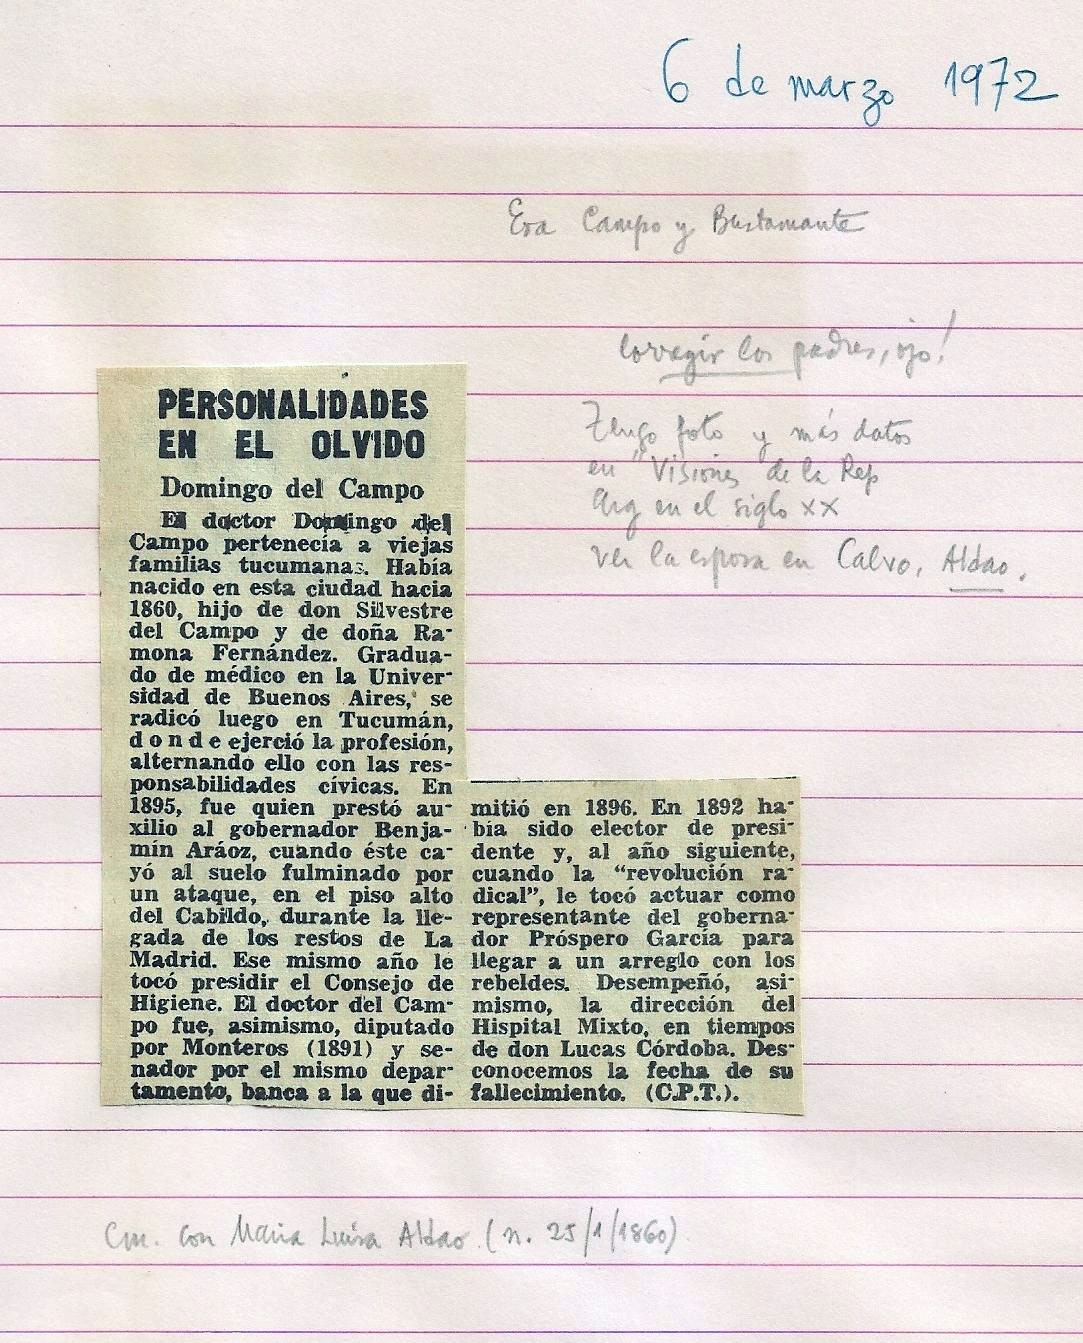 6 de marzo 1972
Era Campo y Bustamante
Corregir los padres, ojo!
Tengo foto y más datos
en "Visiones de la Rep
Arg en el siglo XX
ver la esposa en Calvo, Aldao.
PERSONALIDADES
EN EL OLVIDO
Domingo del Campo
El doctor Domingo del
Campo pertenecía a viejas
familias tucumanas. Había
nacido en esta ciudad hacia
1860, hijo de don Silvestre
del Campo y de doña Ra-
mona Fernández. Gradua-
do de médico en la Univer-
sidad de Buenos Aires, se
radicó luego en Tucumán,
donde ejerció la profesión,
alternando ello con las res-
ponsabilidades cívicas. En
1895, fue quien prestó au-
xilio al gobernador Benja-
mín Aráoz, cuando éste ca-
yó al suelo fulminado por
un ataque, en el piso alto
del Cabildo, durante la lle-
gada de los restos de La
Madrid. Ese mismo año le
tocó presidir el Consejo de
Higiene. El doctor del Cam-
po fue, asimismo, diputado
por Monteros (1891) y se-
nador por el mismo depar-
tamento, banca a la que di-
mitió en 1896. En 1892 ha-
bía sido elector de presi-
dente y, al año siguiente,
cuando la "revolución ra-
dical", le tocó actuar como
representante del goberna-
dor Próspero García para
llegar a un arreglo con los
rebeldes. Desempeñó, asi-
mismo, la dirección del
Hispital Mixto, en tiempos
de don Lucas Córdoba. Des-
conocemos la fecha de su
fallecimiento. (C.P.T.).
Cm. con Maria Luisa Aldao (n. 25/1/1860)